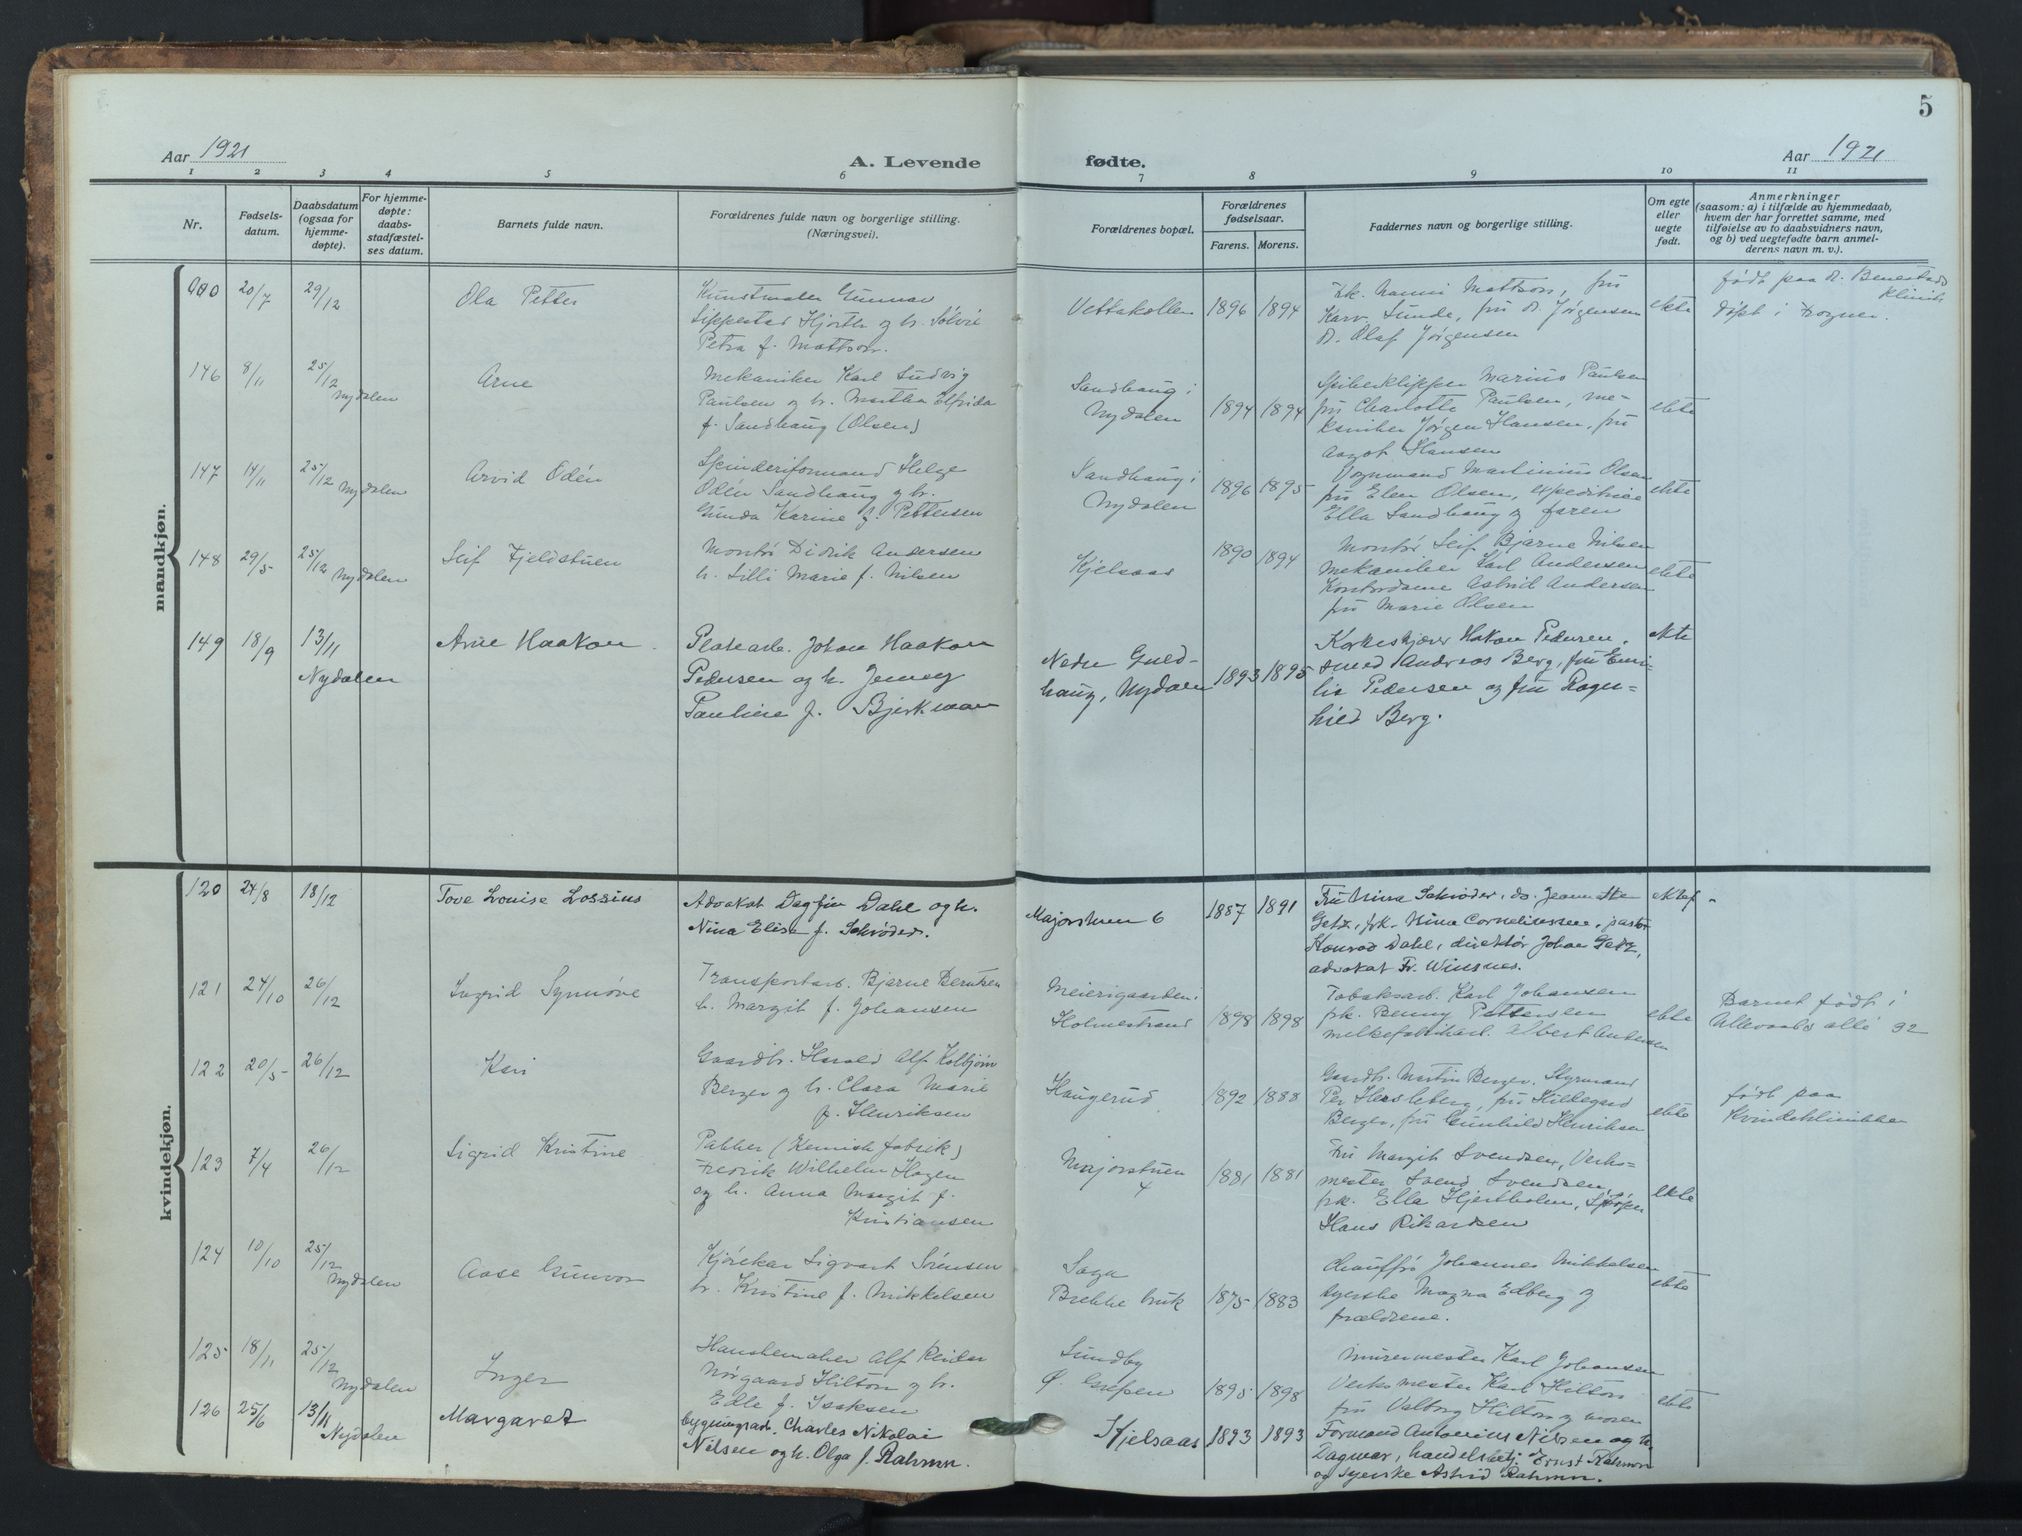 5
Aar 1921
A. Levende
fødte.
Aar 1921
1 2 3 4 5 6 7 8 9 10 11
Nr.
Fødsels-
datum.
Daabsdatum
(ogsaa for
hjemme-
døpte).
For hjemme-
døpte:
daabs-
stadfæstel-
ses datum.
Barnets fulde navn.
Forældrenes fulde navn og borgerlige stilling.
(Næringsvei).
Forældrenes bopæl.
Forældrenes
fødselsaar.
Farens. Morens.
Faddernes navn og borgerlige stilling.
Om egte
eller
uegte
født.
Anmerkninger
(saasom: a) i tilfælde av hjemmedaab,
hvem der har forrettet samme, med
tilføielse av to daabsvidners navn,
og b) ved uegtefødte barn anmel-
derens navn m. v.).
mandkjøn.
20/7 29/12
Ola Petter
Kunstmaler Gunnar
Sippestad Hjorth og h. Sølvi
Petra f. Mattson.
Vettakollen
1896 1894
Frk. Nanni Mattson, fru
Karv. Sunde, fru d. Jørgensen
d. Olaf Jørgensen
ekte
født paa d. Benestads
klinik
døpt i Frogner.
146 8/11 25/12
Nydalen
Arne
Mekaniker Karl Ludvig
Paulsen og h. Martha Elfrida
f. Sandhaug (Olsen)
Sandhaug i
Nydalen
1894 1894
Marius Paulsen
fru Charlotte Paulsen, me-
kaniker Jørgen Hansen, fru
Aagot Hansen
ekte
147 14/11 25/12
Nydalen
Arvid Odén
Spinderiformand Helge
Odén Sandhaug og h.
Gunda Karine f. Pettersen
Sandhaug i
Nydalen
1896 1895
Vognmand Martinius Olsen
fru Elen Olsen, expeditrice
Ella Sandhaug og faren
ekte
148 29/5 25/12
Nydalen
Leif Fjeldstuen
Montør Didrik Andersen
h. Lilli Marie f. Nilsen
Kjelsaas
1890 1894
Montør Leif Bjarne Nilsen
Mekaniker Karl Andersen
Kontordame Astrid Andersen
fru Marie Olsen
ekte
149 18/9 13/11
Nydalen
Arne Haakon
Platearb. Johan Haakon
Pedersen og h. Jenny
Pauline f. Bjerkman
Nedre Guld-
haug, Nydalen
1893 1895
Korkeskjærer Hakon Pedersen,
smed Andreas Berg, fru Emi-
lie Pedersen og fru Ragn-
hild Berg.
ekte
kvindekjøn.
120 24/8 18/12
Tove Louise Lossius
Advokat Dagfin Dahl og h.
Nina Elisa f. Schrøder.
Majorstuen 6
1887 1891
Fru Nina Schrøder, do. Jeanette
Getz, frk. Nina Corneliussen, pastor
Konrad Dahl, direktør Johan Getz,
advokat Fr. Winsnes.
121 24/10 26/12
Ingrid Synnøve
Transportarb. Bjarne Berntsen
h. Margit f. Johansen
Meierigaarden i
Holmestrand
1898 1898
Tobaksarb. Karl Johansen
frk. Benny Pettersen
melkefabrikarb. Albert Andersen
ekte
Barnet født i
Ullevaals allé 92
122 20/5 26/12
Kari
Gaardbr. Harald Alf Kolbjørn
Berger og h. Clara Marie
f. Henriksen
Haugerud
1892 1888
Gaardbr. Martin Berger, Styrmand
Per Hersleberg, fru Hildegard
Berger, fru Gunhild Henriksen
ekte
født paa
Kvindeklinikken
123 7/4 26/12
Sigrid Kristine
Pakker (Kemisk fabrik)
Fredrik Wilhelm Hagen
og h. Anna Margit f.
Kristiansen
Majorstuen
4
1881 1881
Fru Margit Svendsen, Verks-
mester Svend Svendsen,
frk. Ella Hjertholm,
Hans Rikardsen
ekte
124 10/10 25/12
Nydalen
Aase Gunvor
Kjørekar Sigvart Sørensen
h. Kristine f. Mikkelsen
Saga
Brekke bruk
1875 1883
Chauffør Johannes Mikkelsen
syerske Magna Edberg og
forældrene.
ekte
125 18/11 25/12
Nydalen
Inger
Hanskemaker Alf Reidar
Nørgaard Hilton og h.
Edle f. Isaksen
Sundby
Ø. Grefsen
1895 1898
Murermester Karl Johansen
Verksmester Karl Hilton
fru Valborg Hilton og moren
ekte
126 25/6 13/11
Nydalen
Margaret
bygningsarb. Charles Nikolai
Nilsen og h. Olga f. Rahmn.
Kjelsaas
1893 1893
Formand Antonius Nilsen og h.
Dagmar, handelsbetj. Ernst Rahmn
og syerske Astrid Rahmn.